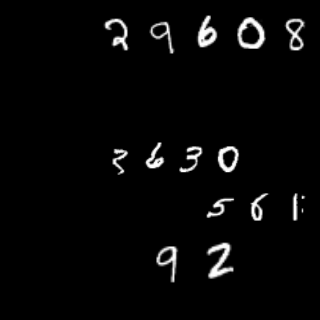 29608
3630
561
92